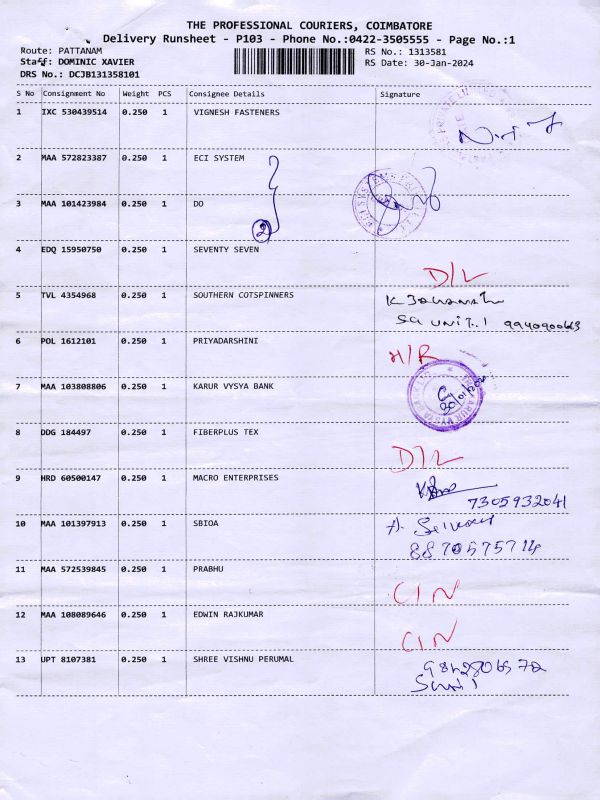 THE PROFESSIONAL COURIERS, COIMBATORE
Delivery Runsheet - P103 - Phone No.:0422-3505555 - Page No.:1
Route: PATTANAM
RS No.: 1313581
Staff: DOMINIC XAVIER
RS Date: 30-Jan-2024
DRS No.: DCJB131358101
S No Consignment No Weight PCS Consignee Details Signature
1 IXC 530439514 0.250 1 VIGNESH FASTENERS
2 MAA 572823387 0.250 1 ECI SYSTEM
3 MAA 101423984 0.250 1 DO
2
4 EDQ 15950750 0.250 1 SEVENTY SEVEN
D/L
5 TVL 4354968 0.250 1 SOUTHERN COTSPINNERS
SQ UNIT. 1
6 POL 1612101 0.250 1 PRIYADARSHINI
H/R
7 MAA 103808806 0.250 1 KARUR VYSYA BANK
8 DDG 184497 0.250 1 FIBERPLUS TEX
D/L
9 HRD 60500147 0.250 1 MACRO ENTERPRISES
7305932041
10 MAA 101397913 0.250 1 SBIOA
8870575714
11 MAA 572539845 0.250 1 PRABHU
C/N
12 MAA 108089646 0.250 1 EDWIN RAJKUMAR
C/N
13 UPT 8107381 0.250 1 SHREE VISHNU PERUMAL